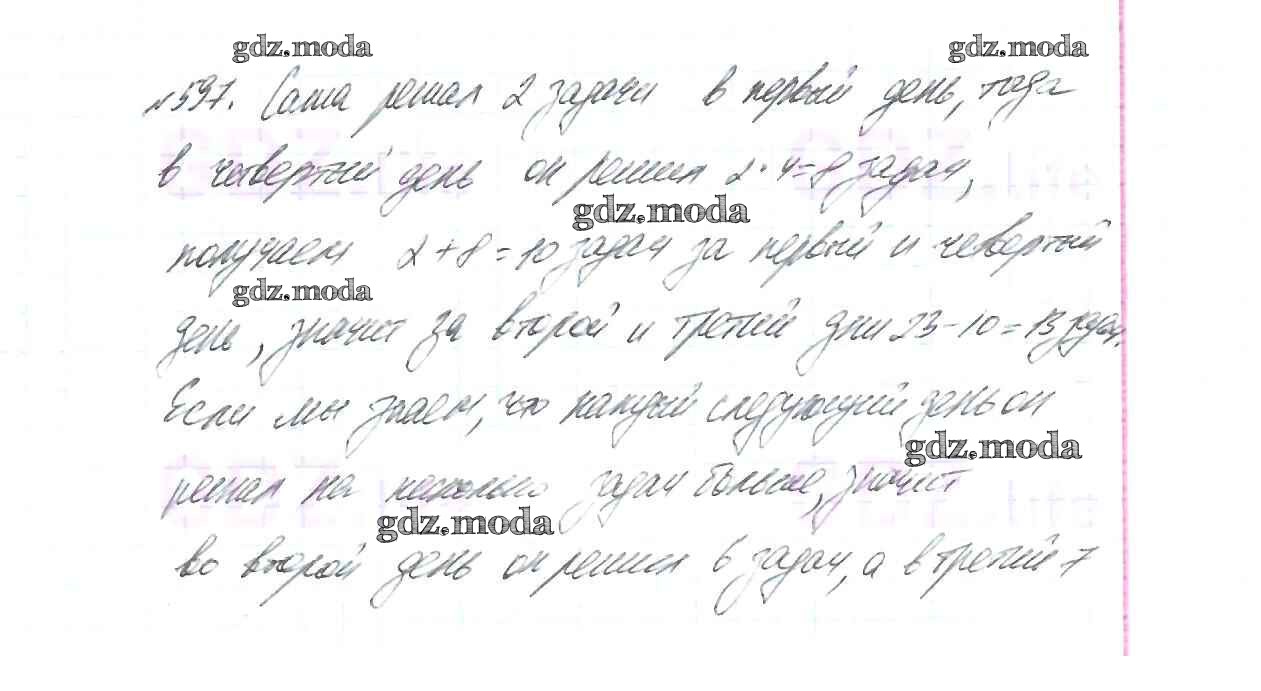 gdz.moda gdz.moda
№597. Саша решал 2 задачи в первый день, тогда
в четвертый день он решил 2·4=8 задач,
gdz.moda
получаем 2+8=10 задач за первый и четвертый
gdz.moda
день, значит за второй и третий дни 23-10=13 задач.
Если мы знаем, что каждый следующий день он
gdz.moda
решал на несколько задач больше, значит
gdz.moda
во второй день он решил 6 задач, а в третий 7